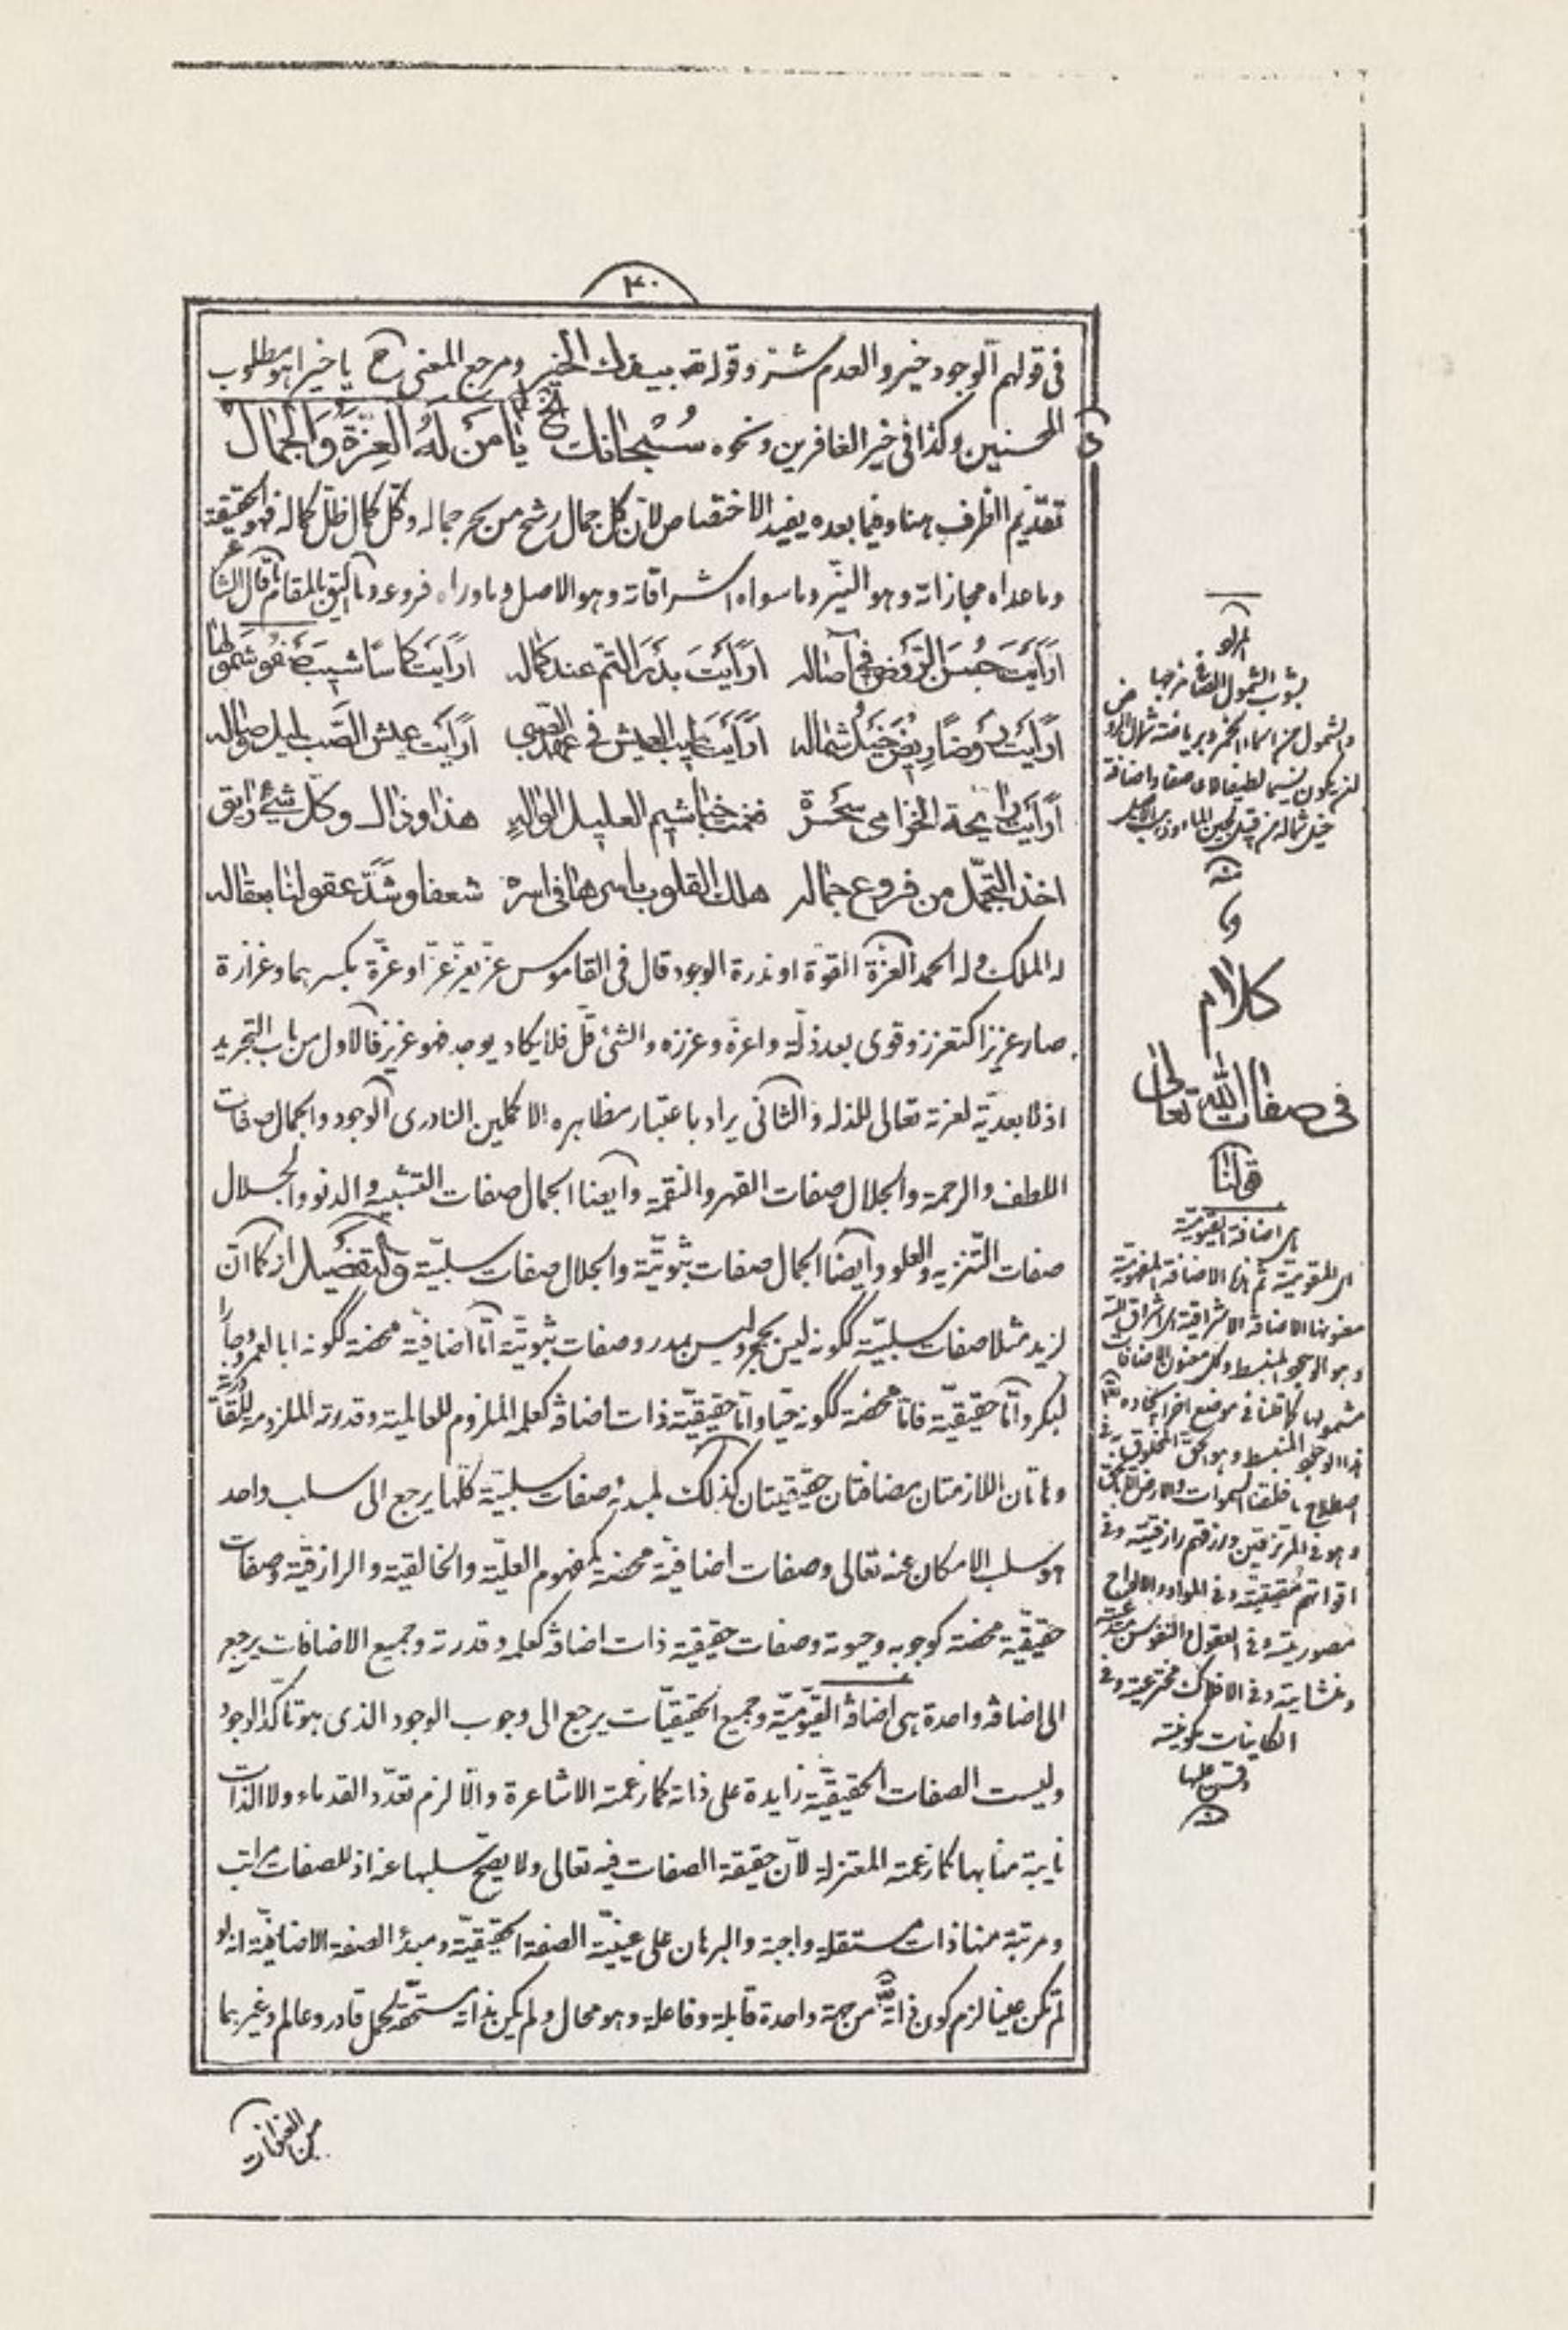 ۴۰
فى قولهم الوجود خير والعدم شر وقوله بيدك الخير ومرجع المعنى ح يا خيرا هو مطلوب
المحسنين وكذا فى خير الغافرين ونحوه سُبْحانَكَ الخ يا مَنْ لَهُ العِزَّةُ وَالجَمالُ
تقديم الظرف هنا وفيما بعده يفيد الاختصاص لان كل جمال رشح من بحر جماله وكل كمال ظل كماله فهو الحقيقة
وما عداه مجازاته وهو النيّر وما سواه اشراقاته وهو الاصل وما وراه فروعه وما اليق بالمقام ما قال الشاعر
ارأيت حسن الروض فى آصاله ارأيت بدر التم عند كماله ارأيت كاسا شيب صفو شمولها
ارأيت روضا ريض خيل شماله ارأيت طيب العيش فى عهد الصبى ارأيت عيش الصب ليل وصاله
ارأيت رايحة الخزامى سحرة فغمت خياشيم العليل الواله هذا وذاك وكل شىء رايق
اخذ التجمل من فروع جماله هلك القلوب باسرها فى اسره شعفا وشد عقولنا بعقاله
له الملك وله الحمد العزة القوة او ندرة الوجود قال فى القاموس عز يعز عزا وعزة بكسرهما وعزازة
صار عزيزا كتعزز وقوى بعد ذلة واعزه وعززه والشئ قل فلا يكاد يوجد فهو عزيز فالاول من باب التجريد
اذ لا بعدية لعزته تعالى للذلة والثانى يراد باعتبار مظاهره الاكملين النادرى الوجود والجمال صفات
اللطف والرحمة والجلال صفات القهر والنقمة وايضا الجمال صفات التشبيه والدنو والجلال
صفات التنزيه والعلو وايضا الجمال صفات ثبوتيّة والجلال صفات سلبيّة والتفصيل انه كما انّ
لزيد مثلا صفات سلبيّة ككونه ليس بحجر وليس بمدر وصفات ثبوتيّة امّا اضافيّة محضة ككونه ابا لعمرو وجارا
لبكر وامّا حقيقيّة فامّا محضة ككونه حيّا وامّا حقيقيّة ذات اضافة كعلمه الملزوم للعالمية وقدرته الملزومة للقادرية
وهاتان اللازمتان مضافتان حقيقيتان كذلك لمبدئه صفات سلبيّة كلّها يرجع الى سلب واحد
هو سلب الامكان عنه تعالى وصفات اضافيّة محضة كمفهوم العليّة والخالقية والرازقيّة وصفات
حقيقيّة محضة كوجوبه وحيوته وصفات حقيقيّة ذات اضافة كعلمه وقدرته وجميع الاضافات يرجع
الى اضافة واحدة هى اضافة القيّوميّة وجميع الحقيقيّات يرجع الى وجوب الوجود الذى هو تاكد الوجود
وليست الصفات الحقيقيّة زايدة على ذاته كما زعمته الاشاعرة والّا لزم تعدّد القدماء ولا الذات
نايبة منابها كما زعمته المعتزلة لانّ حقيقة الصفات فيه تعالى ولا يصحّ سلبها عنه اذ للصفات مراتب
ومرتبة منها ذات مستقلة واجبة والبرهان على عينيّة الصفة الحقيقيّة ومبدء الصفة الاضافيّة انه لو
لم تكن عينا لزم كون ذاته من جهة واحدة قابلة وفاعلة وهو محال ولم يكن بذاته مستحقّة لحمل قادر وعالم وغيرهما
من الصفات
والشمول من اسماء الخمر
منه
كلام
فى صفات الله تعالى
قولنا
هى اضافة القيوميّة
ثم
الاضافة الاشراقية
وهو الوجود المنبسط
مشمولها كما قلنا فى موضع اخر
ما خلقنا السموات والارض الا بالحق
وهو فى المرتزقين ورزقهم رازقيّة وفى
وفى العقول والنفوس
وفى الافلاك مخترعية وفى
الكاينات مكونيّة
وقس عليها
منه